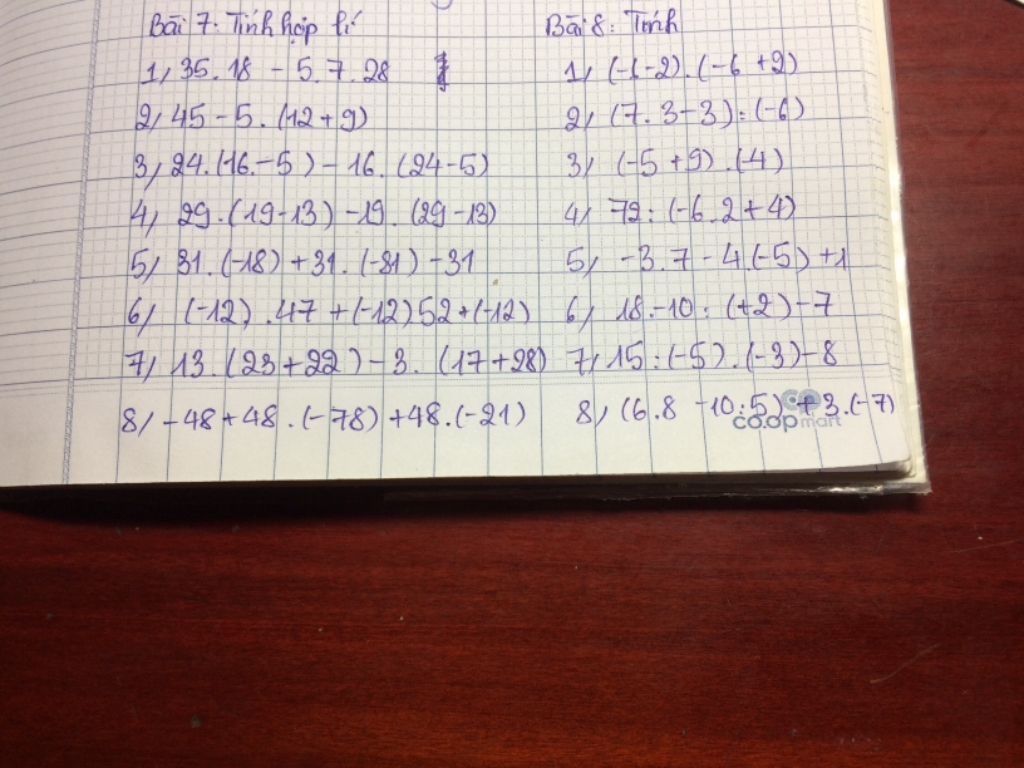 Bài 7: Tính hợp lí
1, 35.18 - 5.7.28
2, 45 - 5.(12+9)
3, 24.(16-5) - 16.(24-5)
4, 29.(19-13) - 19.(29-13)
5, 31.(-18) + 31.(-81) - 31
6, (-12).47 + (-12)52 + (-12)
7, 13.(23+22) - 3.(17+28)
8, -48 + 48.(-78) + 48.(-21)
Bài 8: Tính
1, (-6-2).(-6+2)
2, (7.3-3):(-6)
3, (-5+9).(-4)
4, 72:(-6.2+4)
5, -3.7 - 4.(-5) + 1
6, 18-10:(+2)-7
7, 15:(-5).(-3)-8
8, (6.8 - 10:5) + 3.(-7)
co.opmart